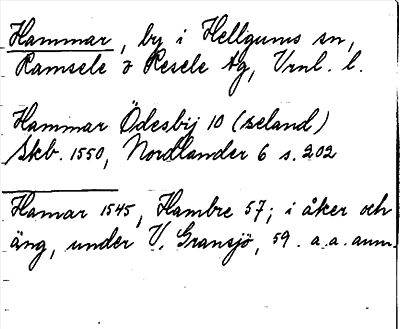 Hammar, by i Hellgums sn,
Ramsele & Resele tg, Vrnl. l.
Hammar Ödesbij 10 (seland)
Skb. 1550, Nordlander 6 s. 202
Hamar 1545, Hambre 57; i åker och
äng, under V. Gransjö, 59. a.a. anm.